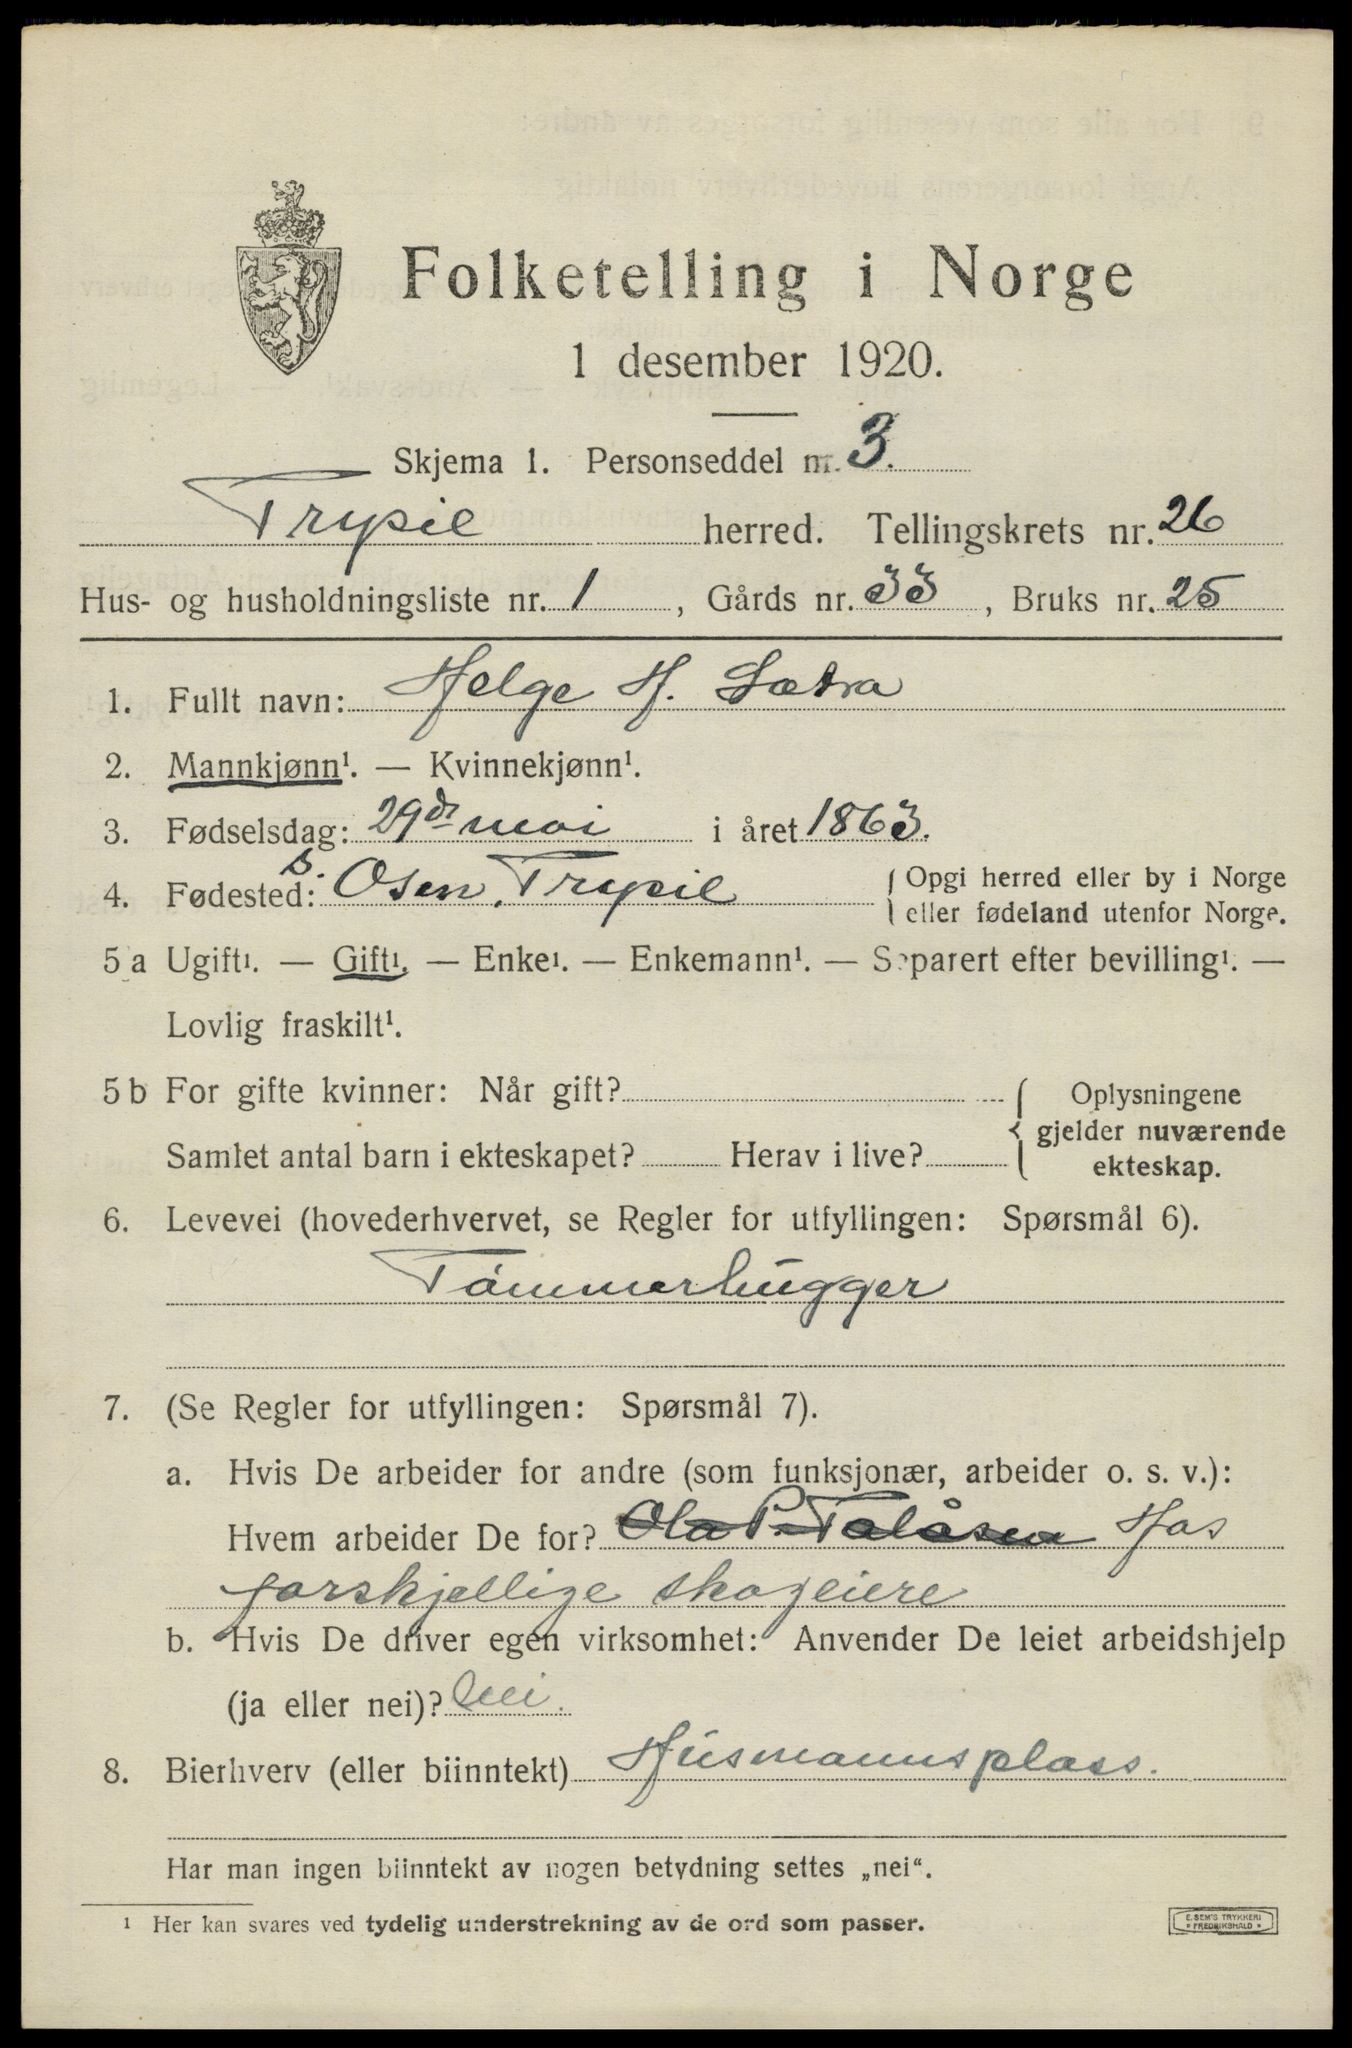 Folketelling i Norge
1 desember 1920.
Skjema 1. Personseddel nr. 3.
Trysil herred. Tellingskrets nr. 26
Hus- og husholdningsliste nr. 1, Gårds nr. 33, Bruks nr. 25
1. Fullt navn: Helge H. Sætra
2. Mannkjønn¹. — Kvinnekjønn¹.
3. Fødselsdag: 29de mai i året 1863.
4. Fødested: S. Osen, Trysil {Opgi herred eller by i Norge
eller fødeland utenfor Norge.
5 a Ugift¹. — Gift¹. — Enke¹. — Enkemann¹. — Separert efter bevilling¹. —
Lovlig fraskilt¹.
5 b For gifte kvinner: Når gift? { Oplysningene
gjelder nuværende
Samlet antal barn i ekteskapet? Herav i live? ekteskap.
6. Levevei (hovederhvervet, se Regler for utfyllingen: Spørsmål 6).
Tømmerhugger
7. (Se Regler for utfyllingen: Spørsmål 7).
a. Hvis De arbeider for andre (som funksjonær, arbeider o. s. v.):
Hvem arbeider De for? Ola P. Telåsen Hos
forskjellige skogeiere
b. Hvis De driver egen virksomhet: Anvender De leiet arbeidshjelp
(ja eller nei)? Nei.
8. Bierhverv (eller biinntekt) Husmannsplass.
Har man ingen biinntekt av nogen betydning settes „nei".
¹ Her kan svares ved tydelig understrekning av de ord som passer.
E. SEM'S TRYKKERI
* FREDRIKSHALD *